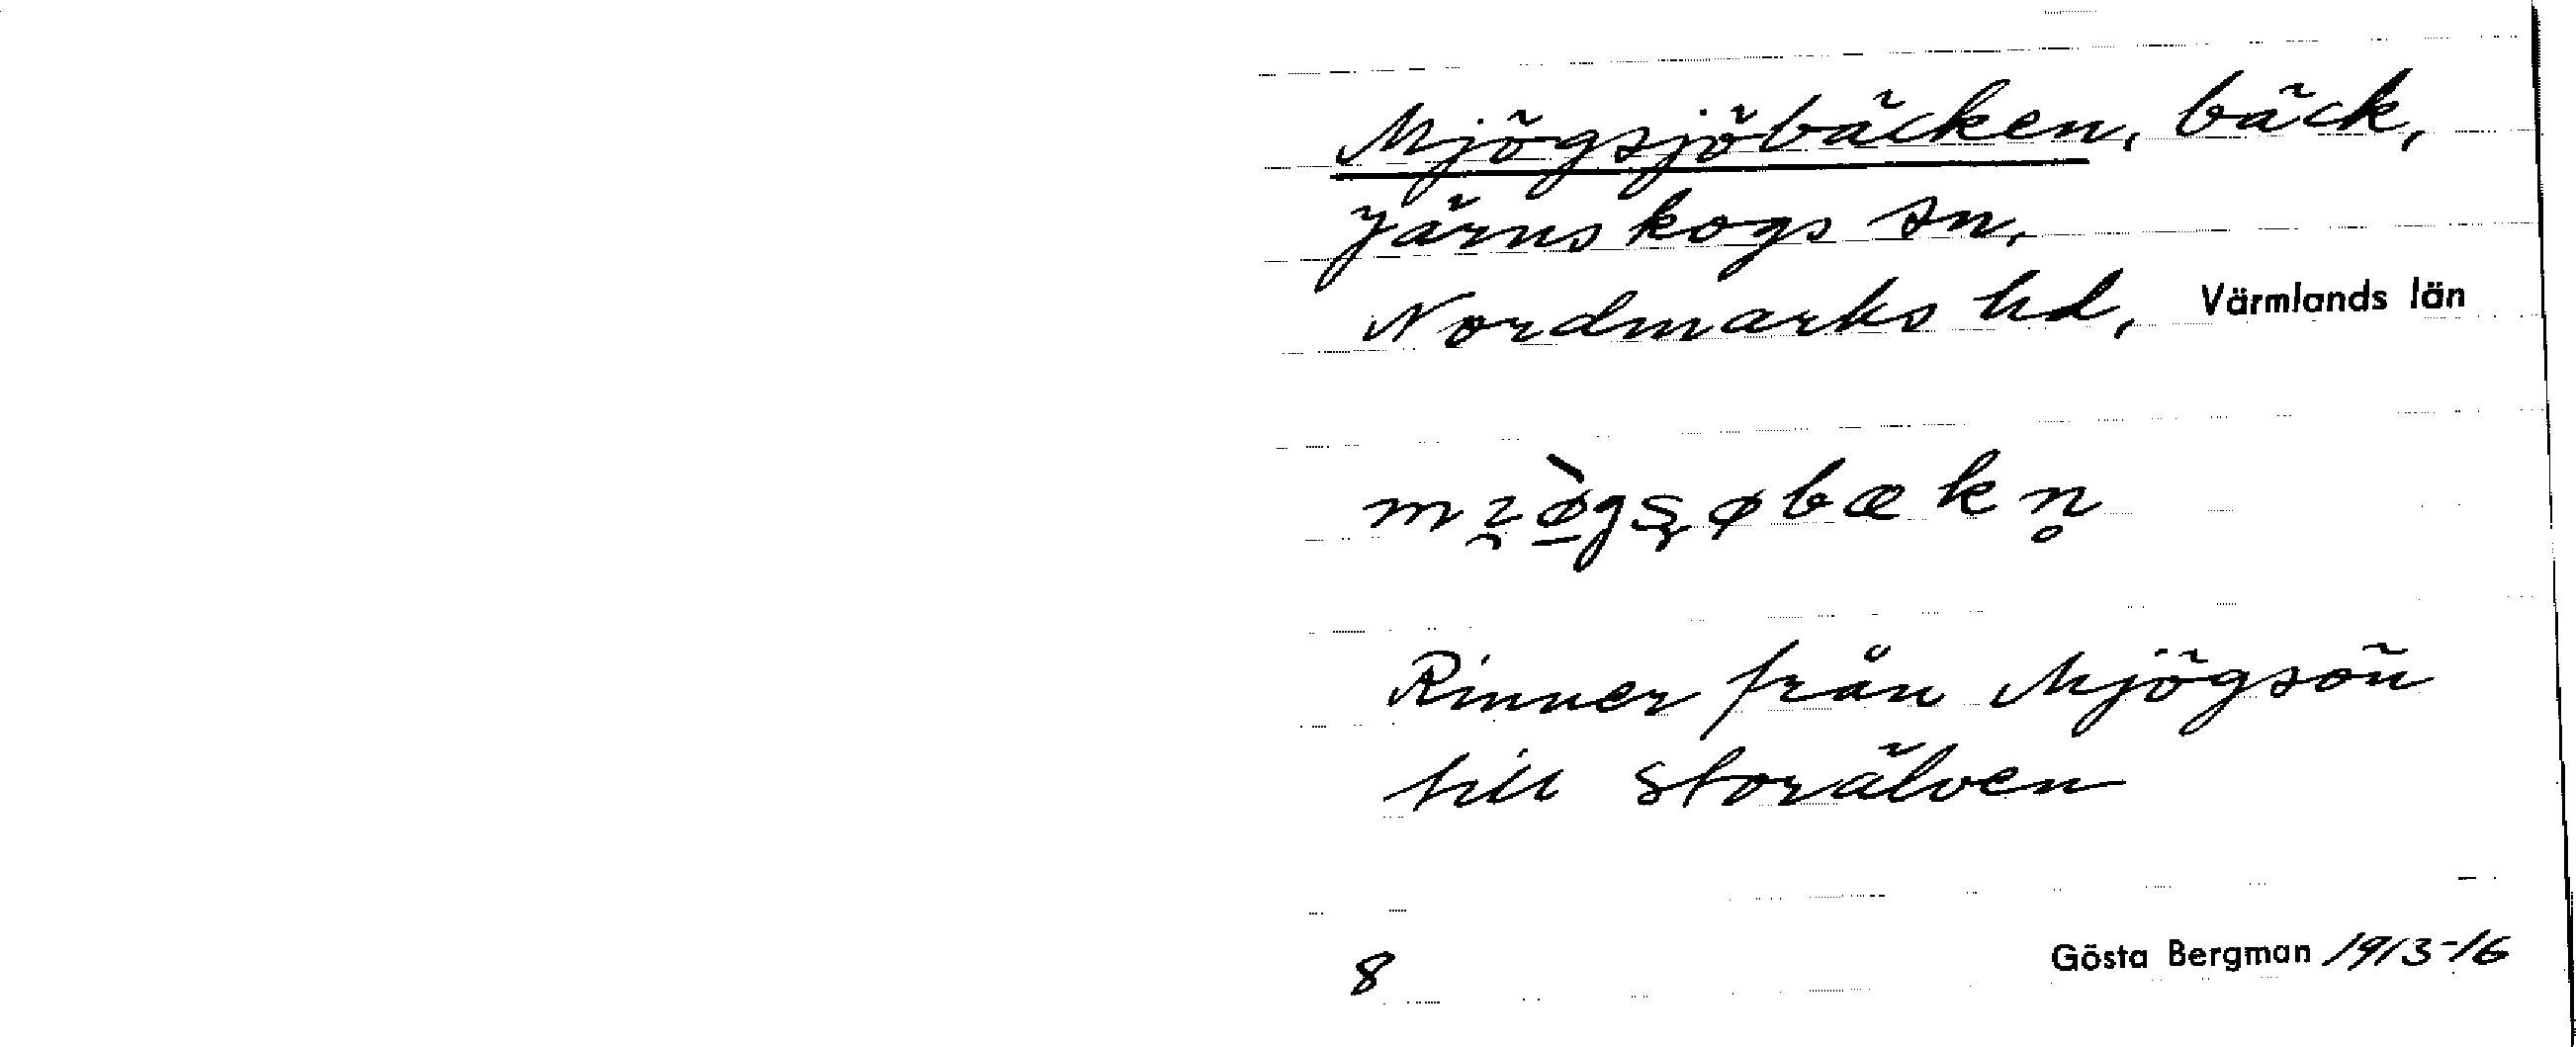 Mjögsjöbäcken, bäck,
Järnskogs sn,
Nordmarks hd, Värmlands län
mı̯ø̱̀gʂøbækn̥
Rinner från Mjögsön
till Storälven
8 Gösta Bergman 1913-16